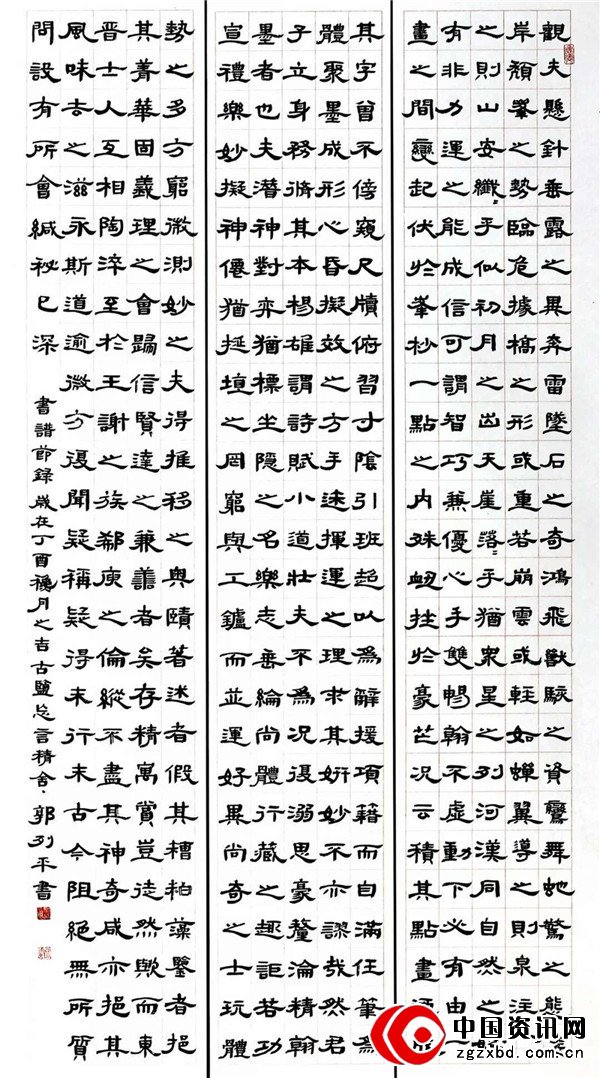 觀夫懸針垂露之異奔雷墜石之奇鴻飛獸駭之資鸞舞蛇驚之態
岸頹峯之勢臨危據槁之形或重若崩雲或輕如蟬翼導之則泉注
之則山安纖〻乎似初月之出天崖落〻乎猶衆星之列河漢同自然之
有非力運之能成信可謂智巧兼優心手雙暢翰不虛動下必有由一
畫之間變起伏於峯杪一點之內殊衄挫於豪芒況云積其點畫
其字曾不傍窺尺牘俯習寸陰引班超以爲辭援項籍而自滿任筆爲
體聚墨成形心昏擬效之方手迷揮運之理求其妍妙不亦謬哉然君
子立身務脩其本楊雄謂詩賦小道壯夫不爲況復溺思豪釐淪精翰
墨者也夫潛神對弈猶標坐隱之名樂志垂綸尚體行藏之趣詎若功
宣禮樂妙擬神僊猶埏埴之罔窮與工鑪而並運好異尚奇之士玩體
勢之多方窮微測妙之夫得推移之奧賾著述者假其糟粕藻鑒者挹
其菁華固義理之會歸信賢達之兼善者矣存精寓賞豈徒然歟而東
晉士人互相陶淬至於王謝之族郗庾之倫縱不盡其神奇咸亦挹其
風味去之滋永斯道逾微方復聞疑稱疑得末行末古今阻絕無所質
問設有所會緘祕已深
書譜節錄歲在丁酉穐月之吉古鹽忘言精舍郭列平書
中国资讯网
zgzxbd.com.cn